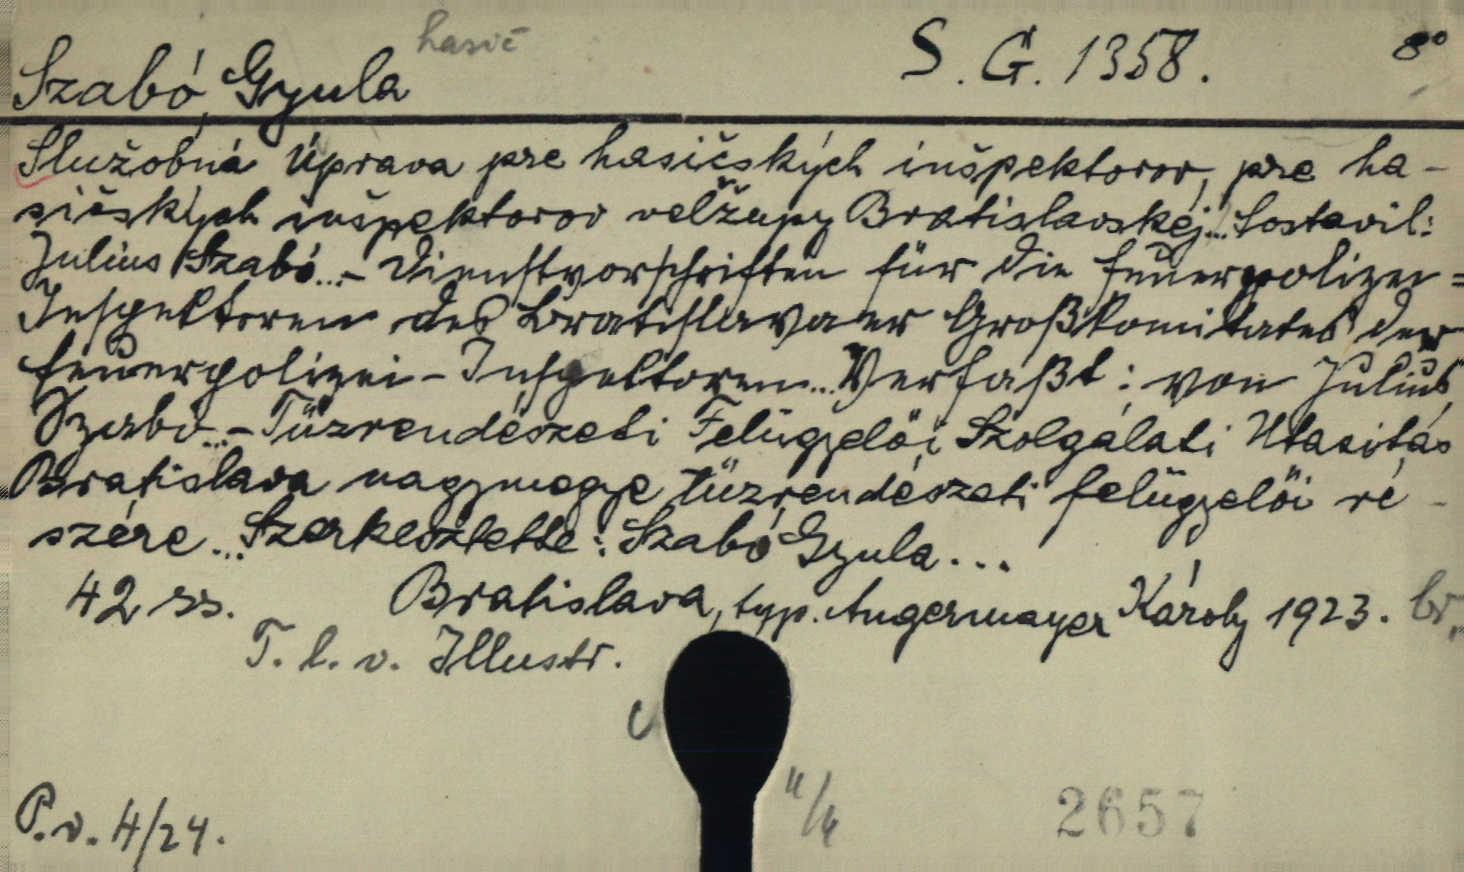 hasič
Szabó, Gyula S. G. 1358. 8°
Služobná úprava pre hasičských inšpektorov, pre ha-
sičských inšpektorov velžupy Bratislavskéj... Sostavil:
Julius Szabó... - Dienstvorschriften für die Feuerpolizei=
Inspektoren des Bratislavaer Großkomitates der
Feuerpolizei-Inspektoren... Verfaßt: von Julius
Szabó... - Tüzrendészeti Felügyelöi Szolgálati Utasitás
Bratislava nagymegye tüzrendészeti felügyelöi ré-
szére... Szerkesztette: Szabó Gyula...
42 ss. Bratislava, typ. Angermayer Károly 1923. br.
T. l. v. Illustr.
P. v. 4/24.
2657